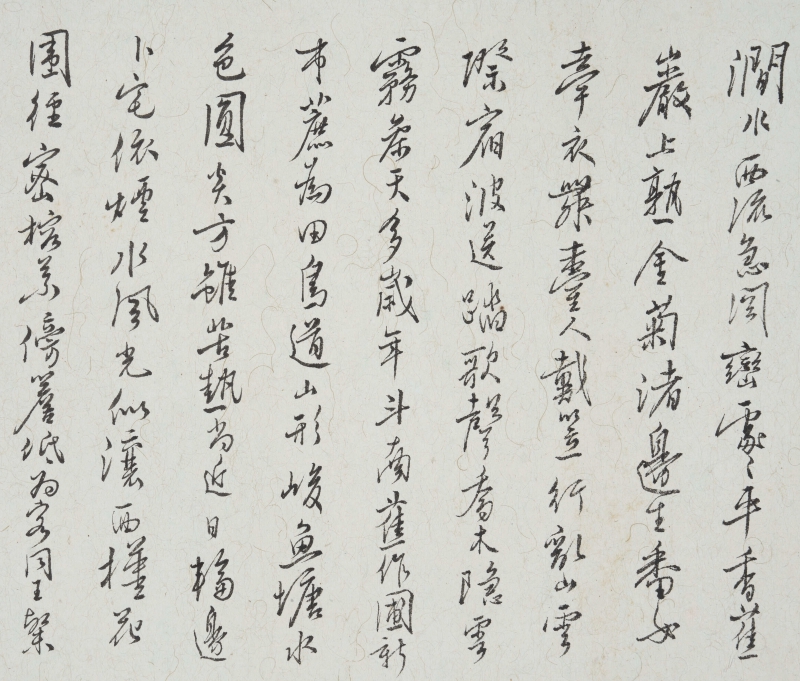 澗水西流急岡巒處々平香蕉
巖上熟金菊渚邊生番女
牽衣臺人戴笠行亂山雲
際宿波送踏歌聲喬木隱雲
霧天多歲年斗南蕉作圃新
市蔗為田鳥道山形峻魚塘水
色圓炎方雖苦熱尚近日輪邊
卜宅依煙水風光似瀼西槿花
圍徑密榕葉傍簷低為客同王粲